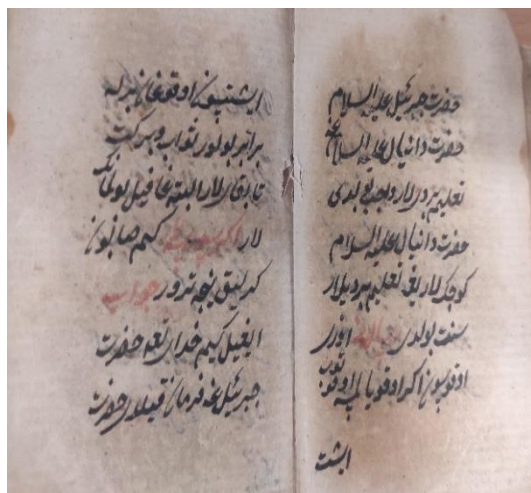 حضرت جبرئیل علیه السلام
حضرت دانیال علیه السلام غه
تعلیم بردی لار واجب بولدی
حضرت دانیال علیه السلام
کوچک لاریغه تعلیم بردیلار
سنت بولدی اوزی
اوقوسون اکر اوقویالمسه اوقوتوب
ایشت
ایشتسون اوقوغان بذله
برابر بولور ثواب و برکت
تابقای لار البته غافل بولمانک
لار اکر کیم صابون
نچه ترور جواب
ایغیل کیم خدای حضرت
جبرئیل غه فرمان قیلدی حضرت